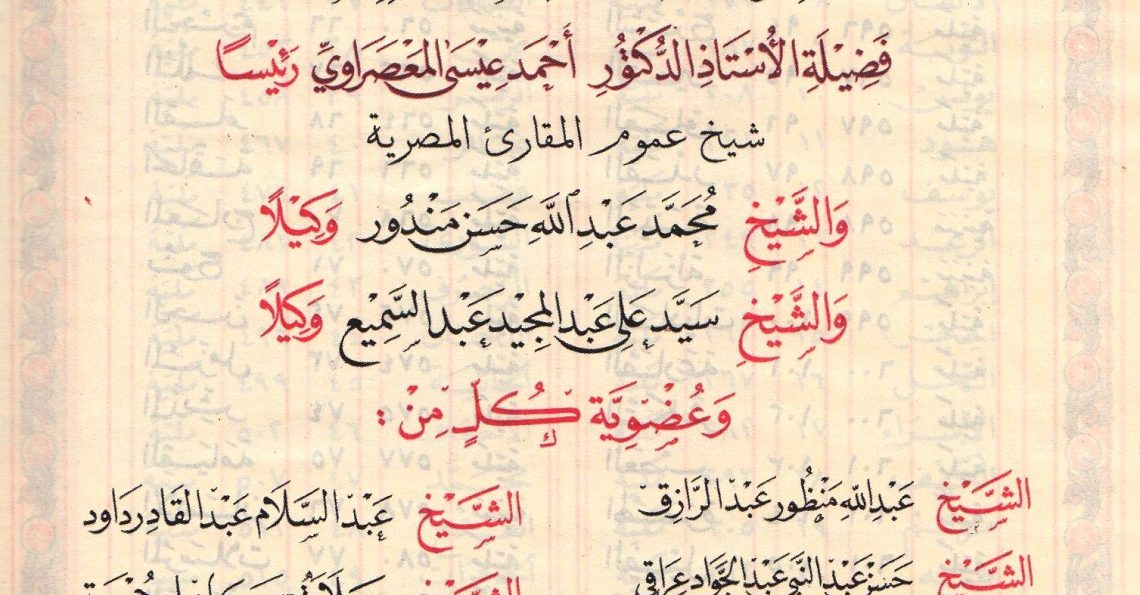 فَضِيلَةِ الأُسْتَاذِ الدُّكْتُورِ أَحْمَد عِيْسَى المَعْصَرَاوِيِّ رَئِيْسًا
شيخ عموم المقارئ المصرية
وَالشَّيْخِ مُحَمَّد عَبْدِ اللَّهِ حَسَن مَنْدُور وَكِيْلًا
وَالشَّيْخِ سَيِّد عَلِي عَبْد المجِيْد عَبْد السَّمِيْع وَكِيلًا
وَعُضْوِيَّة كُلٍّ مِنْ :
الشَّيْخ عَبْدِ اللَّهِ مَنْظُور عَبْد الرَّازِق الشَّيْخ عَبْد السَّلَام عَبْد القَادِر دَاود
الشَّيْخ حَسَن عَبْد النَّبِي عَبْد الجَوَاد عِرَاقِي الشَّيْخ